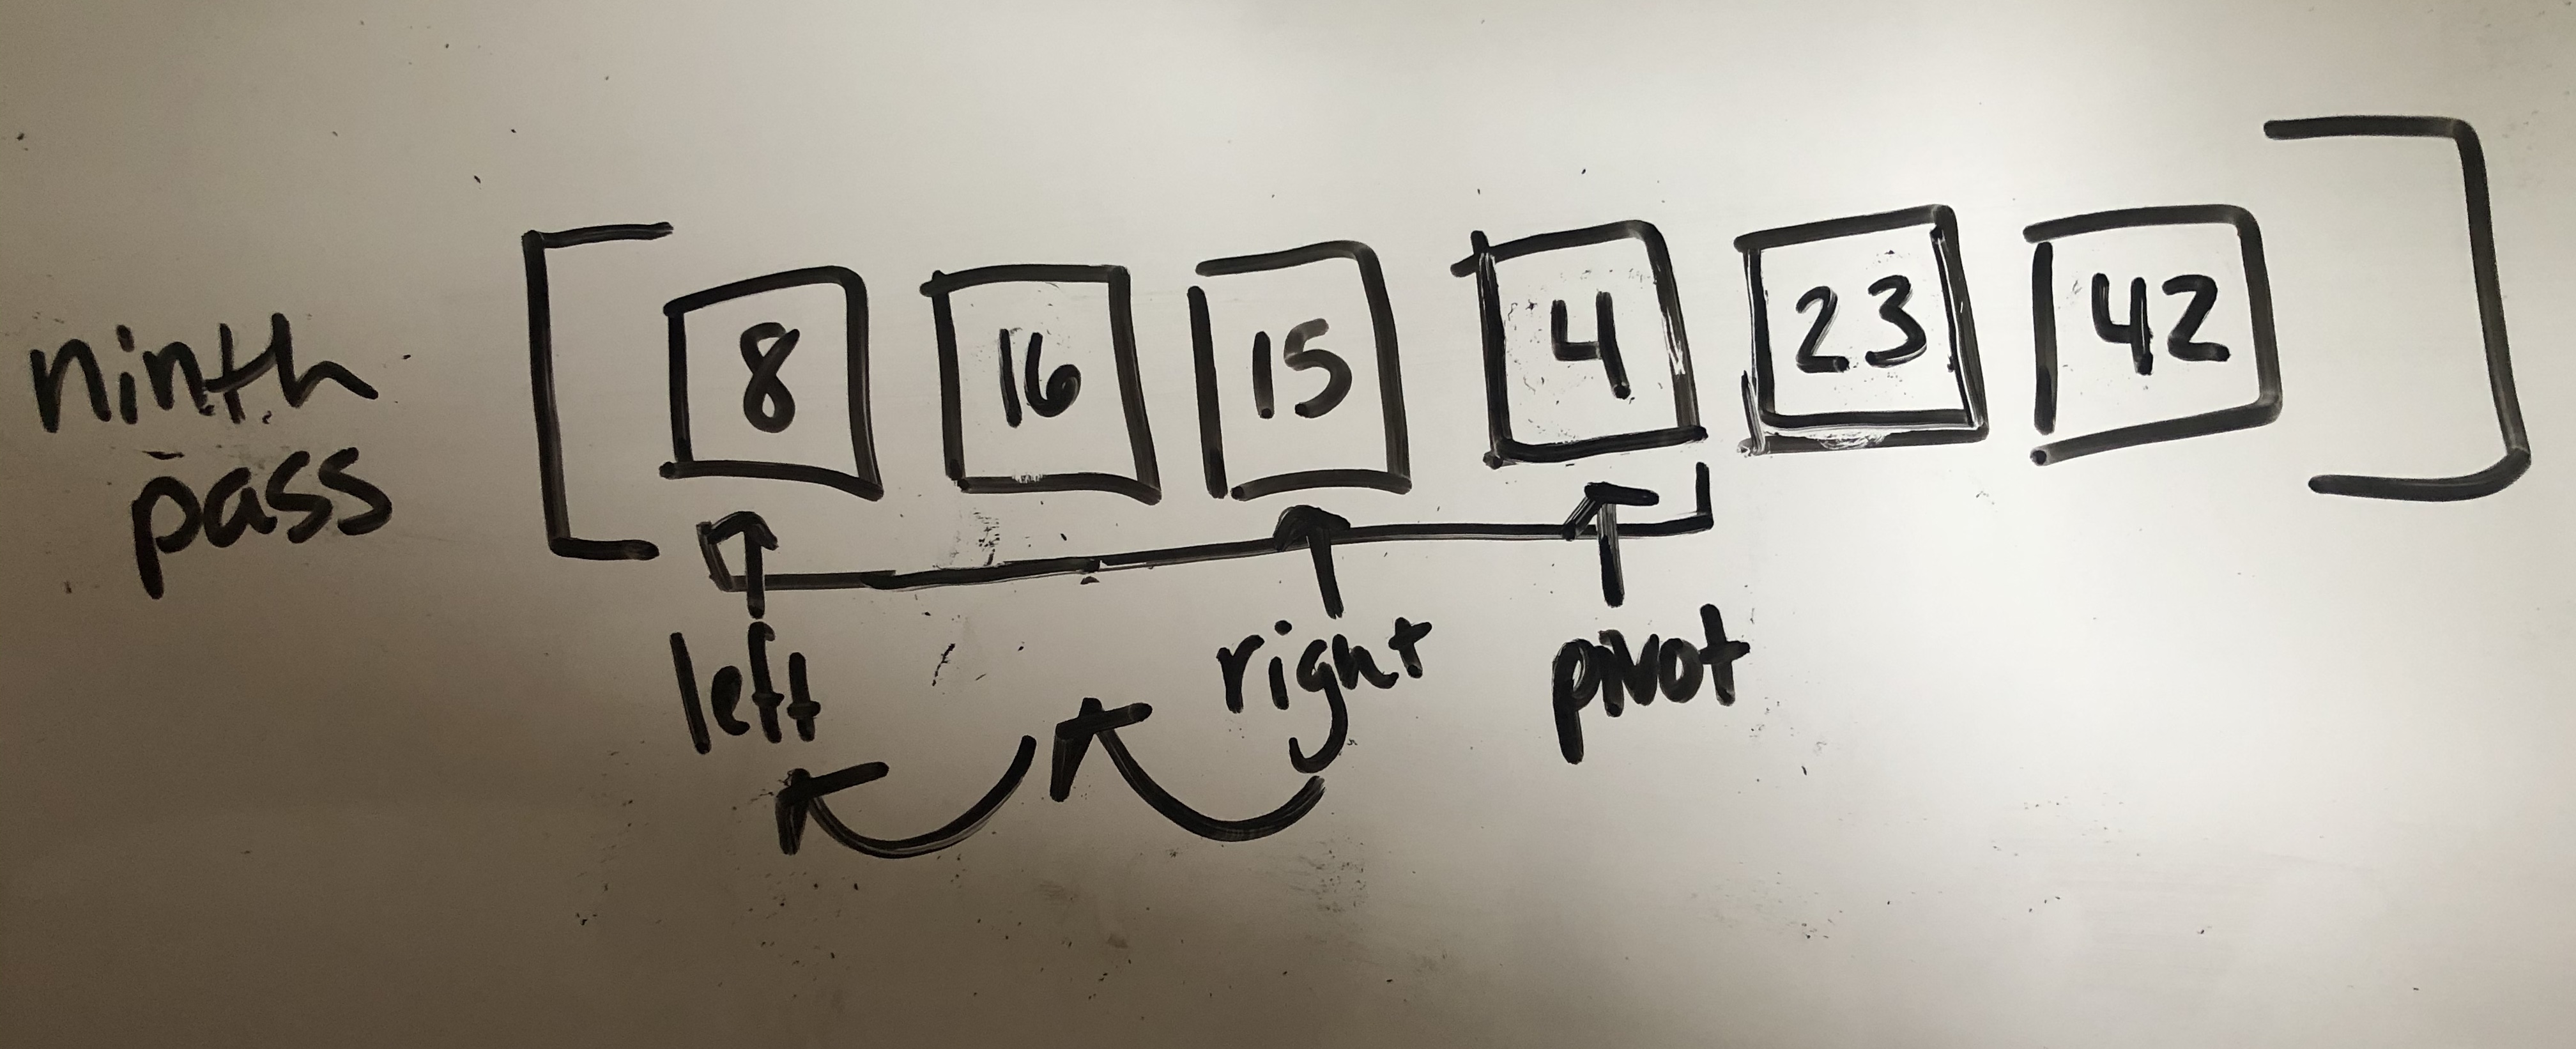 ninth
pass
[ 8 16 15 4 23 42 ]
left right pivot